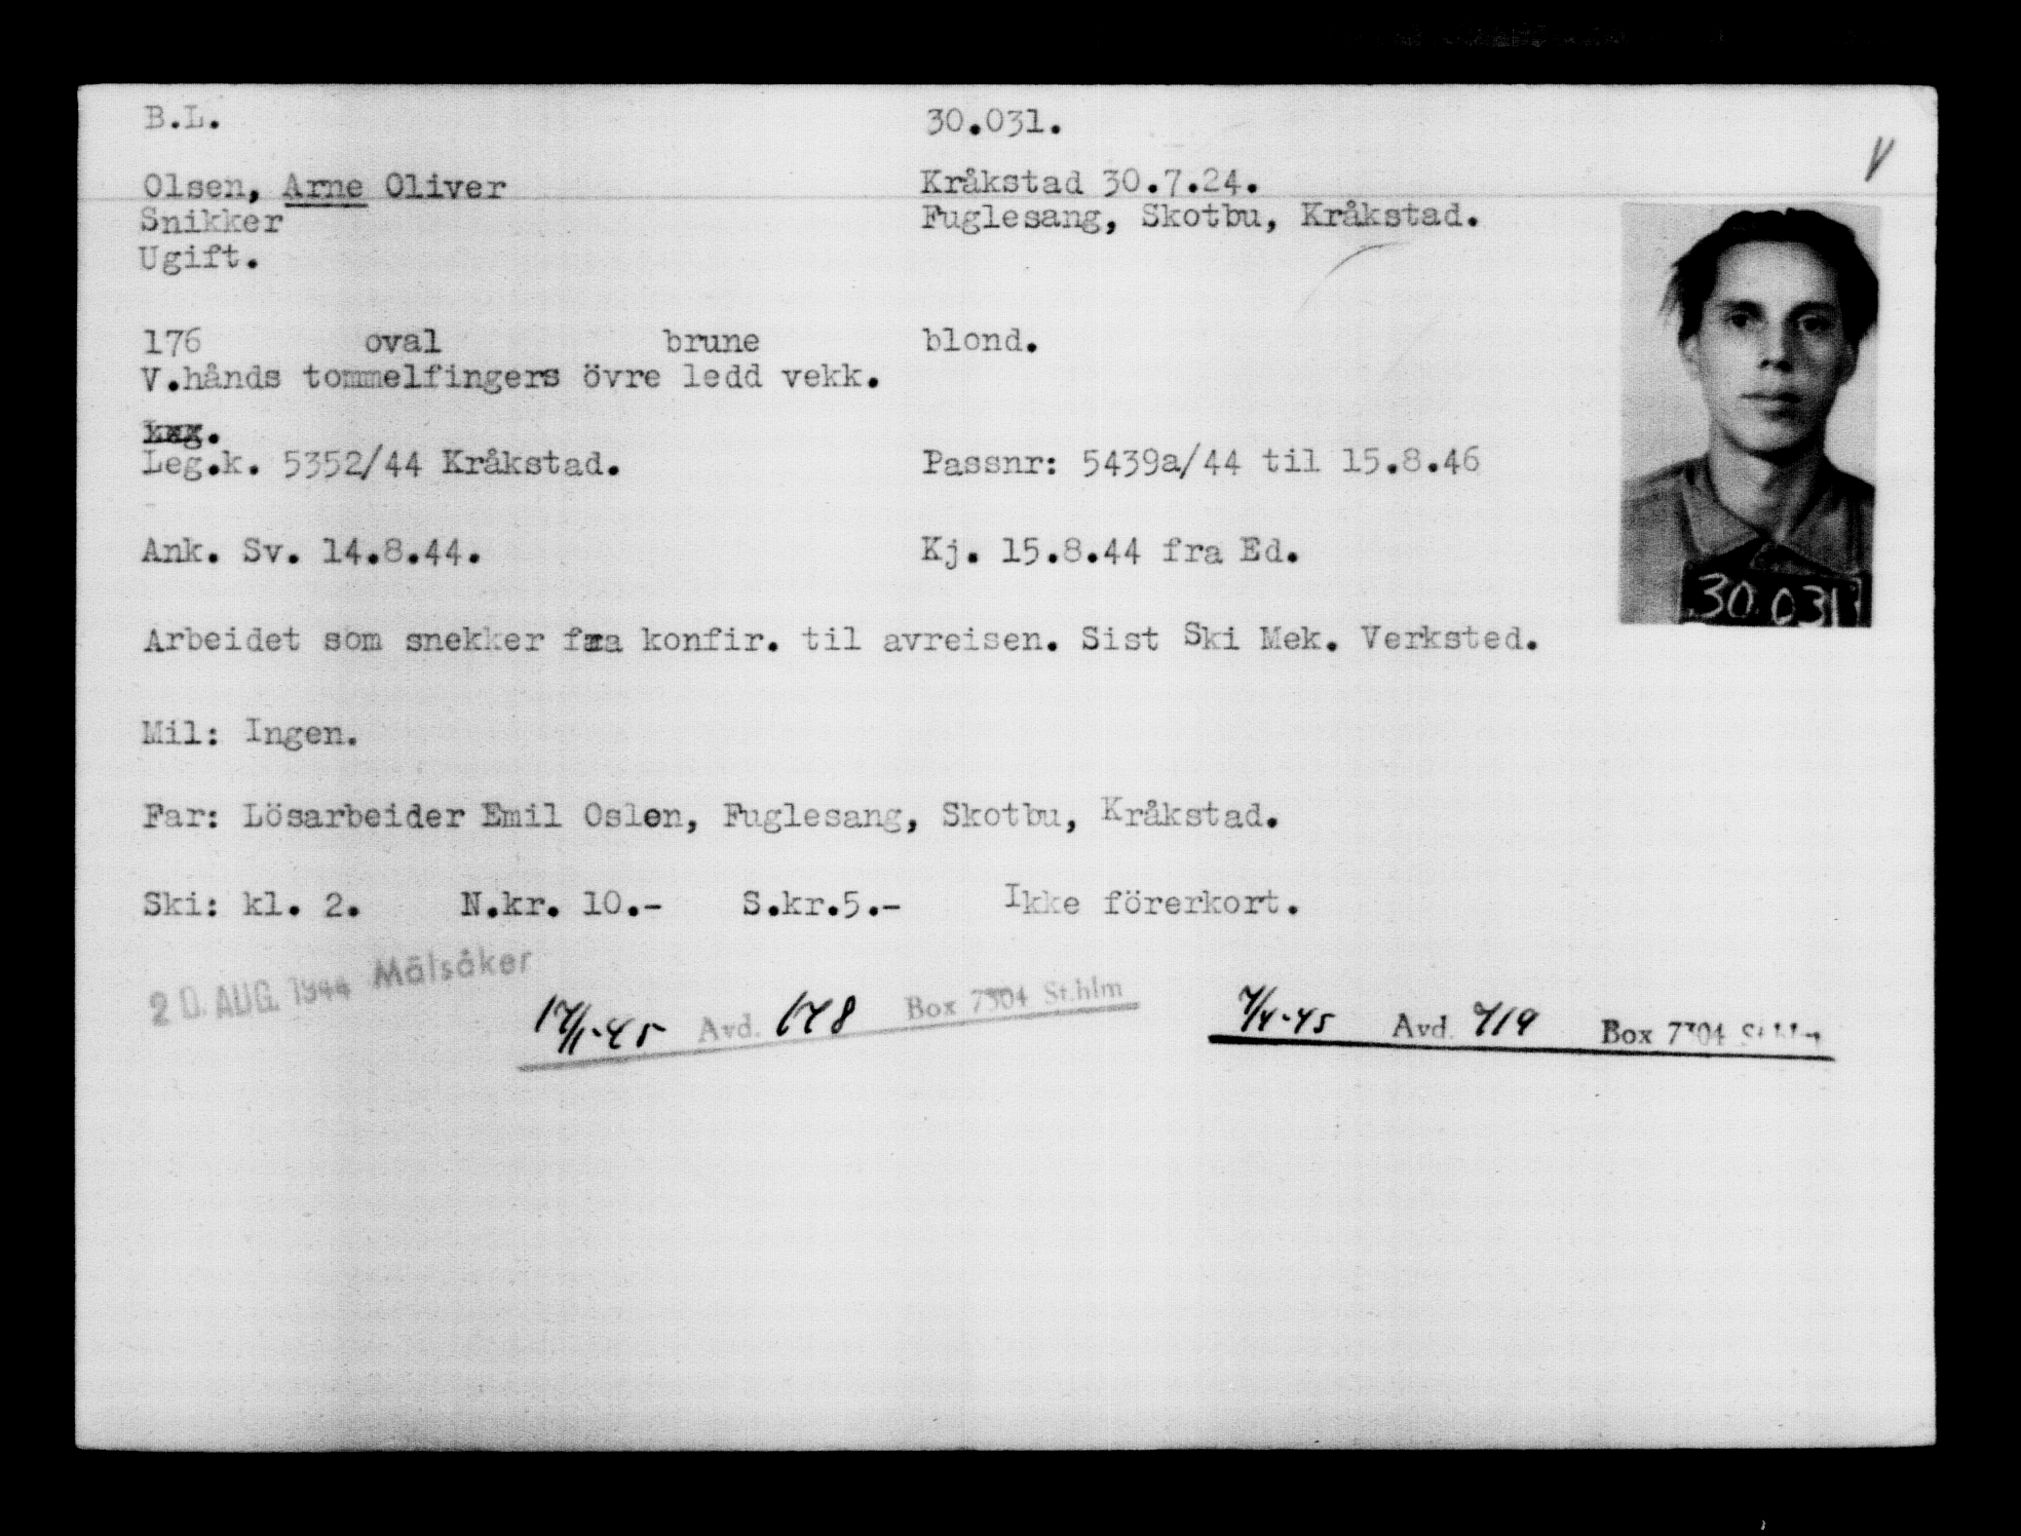 B.L. 30.031.
V
Olsen, Arne Oliver Kråkstad 30.7.24.
Snikker Fuglesang, Skotbu, Kråkstad.
Ugift.
176 oval brune blond.
V.hånds tommelfingers övre ledd vekk.
Leg.k. 5352/44 Kråkstad. Passnr: 5439a/44 til 15.8.46
Ank. Sv. 14.8.44. Kj. 15.8.44 fra Ed.
30.031
Arbeidet som snekker fra konfir. til avreisen. Sist Ski Mek. Verksted.
Mil: Ingen.
Far: Lösarbeider Emil Oslen, Fuglesang, Skotbu, Kråkstad.
Ski: kl. 2. N.kr. 10.- S.kr.5.- Ikke förerkort.
20. AUG. 1944 Mälsåker
17/1-45 Avd. 178 Box 7304 St.hlm
7/4-45 Avd. 719 Box 7304 St.hlm